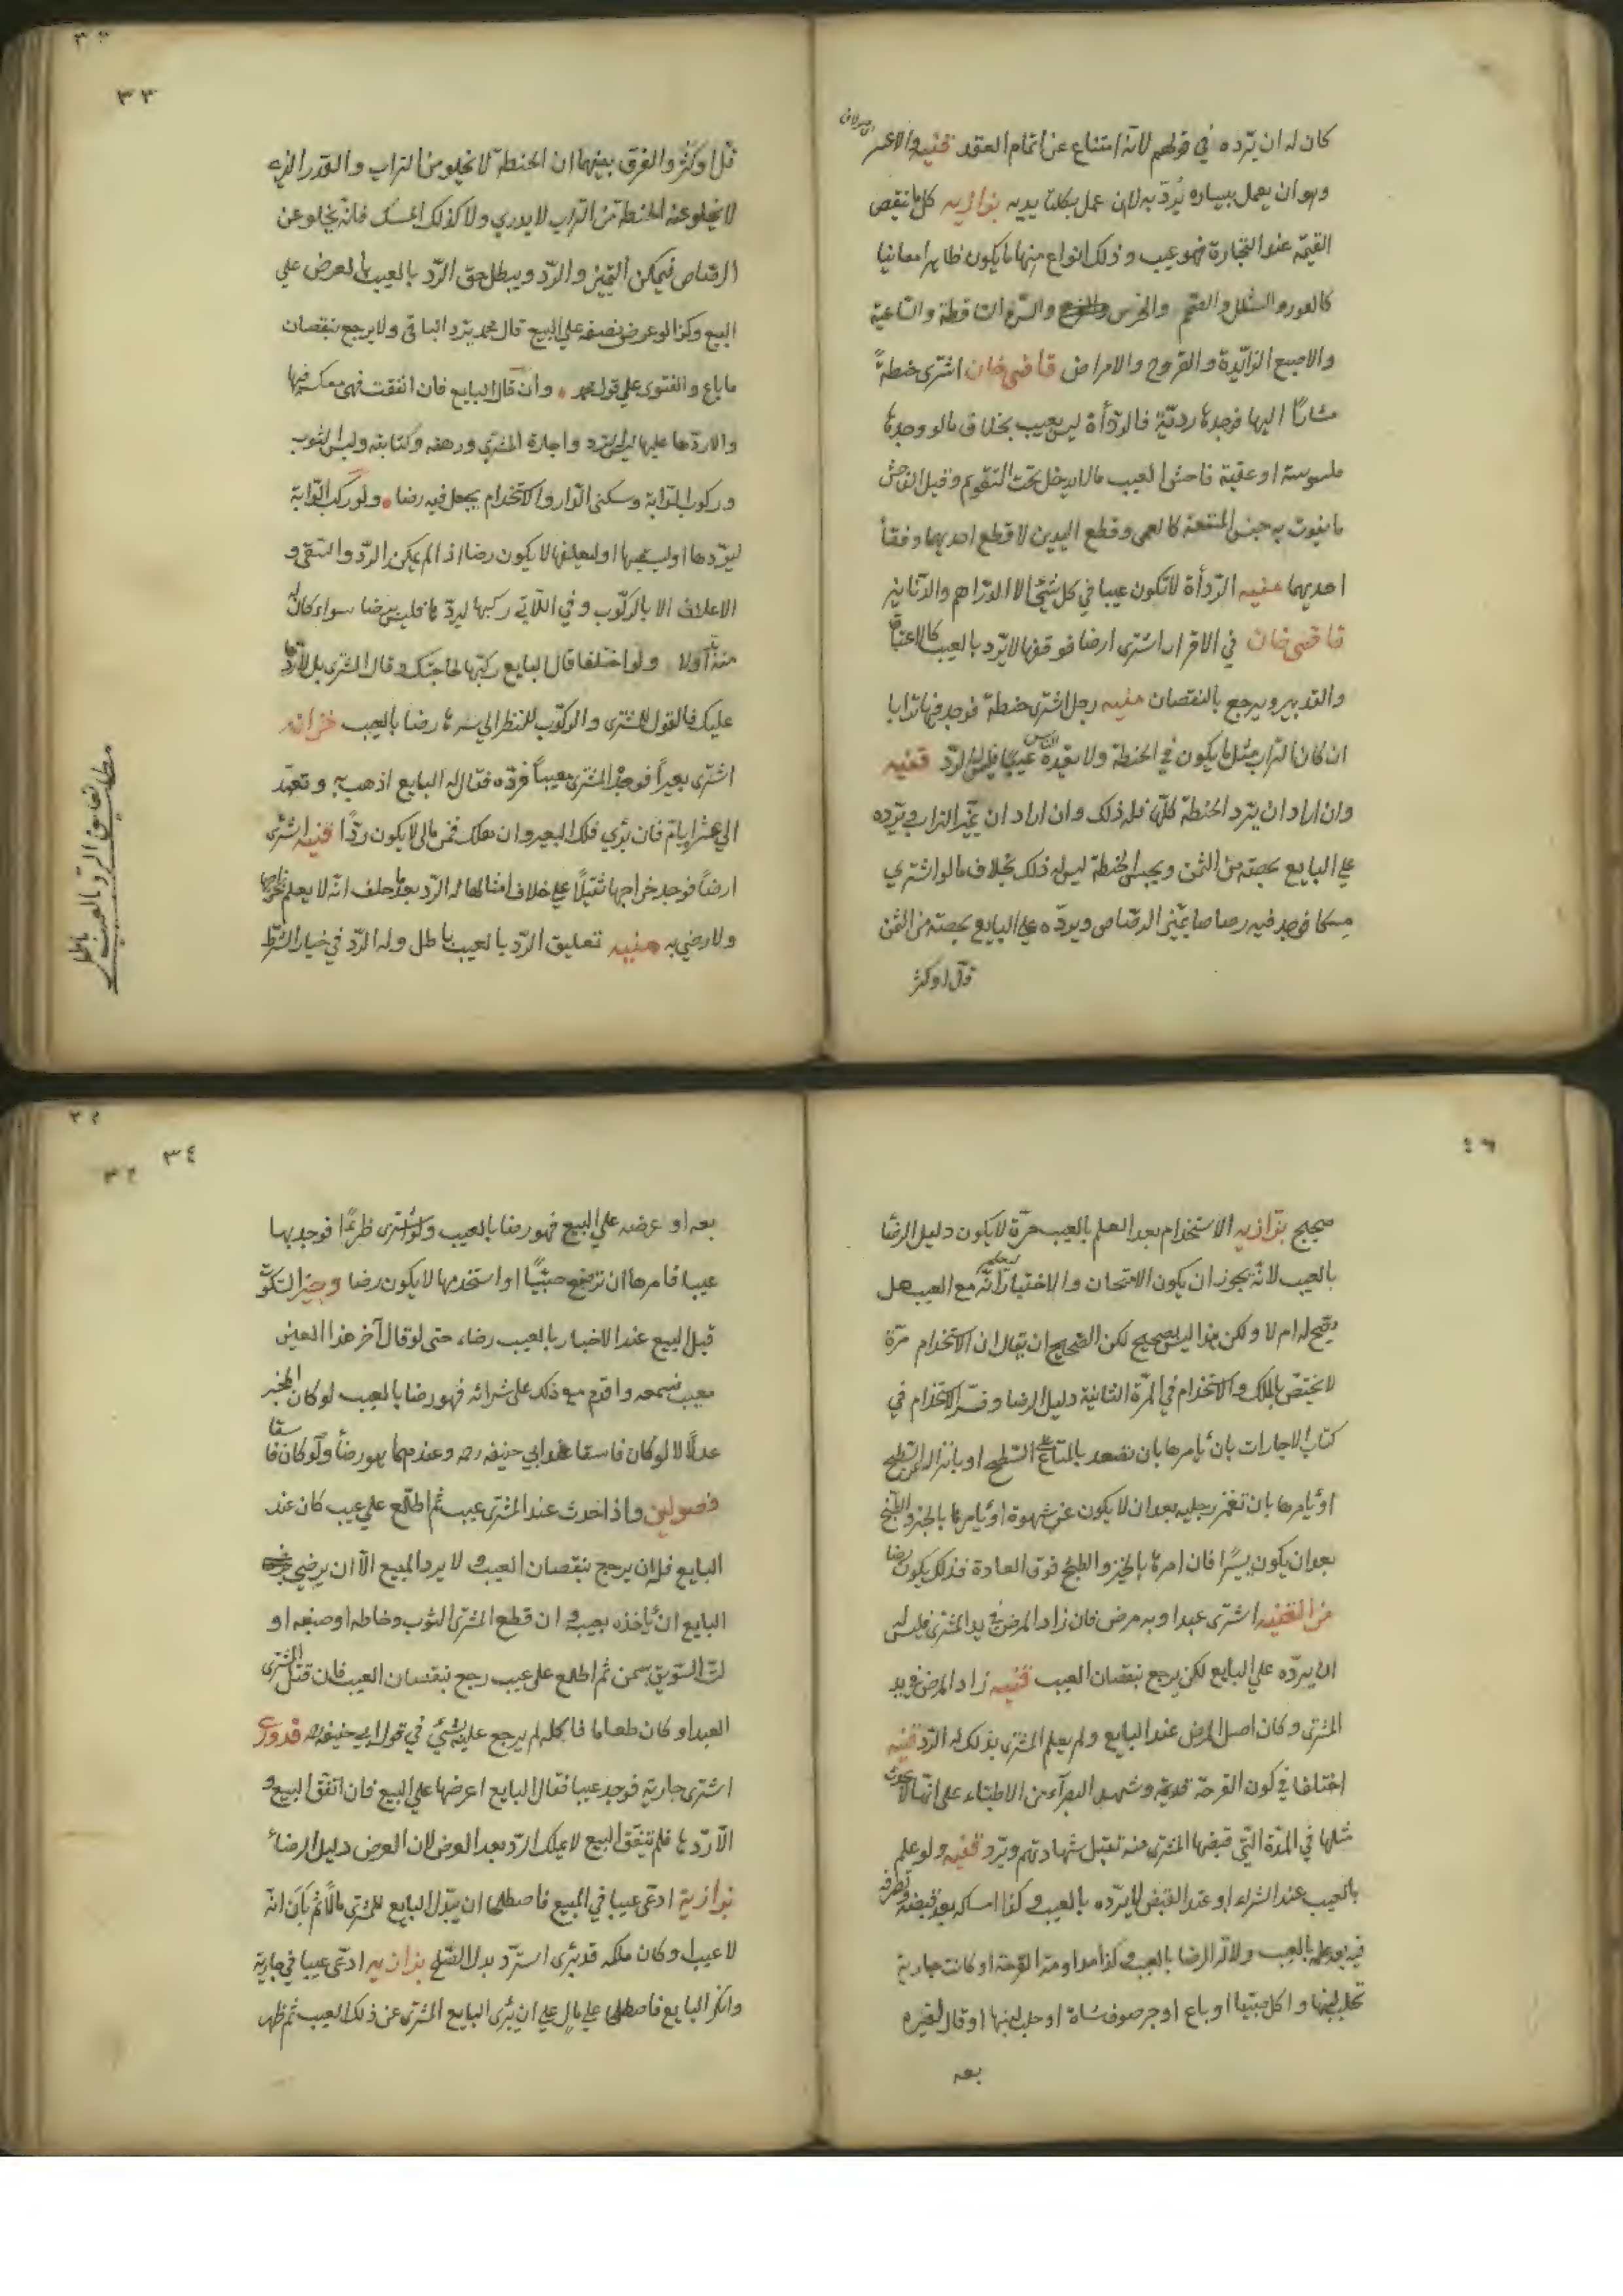 كان له ان يرده في قولهم لانه امتناع عن اتمام العقد قنيه والاعسر
وهو ان يعمل بيساره يُردّ به لا ان عمل بكلتا يديه بزازيه كل ما نقص
القيمة عند التجارة فهو عيب وذلك انواع منها ما يكون ظاهرا معاينا
كالعور والشلل والصمم والخرس والسن الساقطة والشاغية
والاصبع الزائدة والقروح والامراض قاضى خان اشترى حنطةً
مشارًا اليها فوجدها رديّة فالردأة ليس بعيب بخلاف ما لو وجدها
مسوسة او عفنة فاحش العيب مالا يدخل تحت التقويم وقيل الفاحش
ما يفوت به جنس المنفعة كالعمى وقطع اليدين لا قطع احديهما وفقأ
احديهما منيه الردأة لا تكون عيبا في كل شئ الا الدراهم والدنانير
قاضى خان في الاقرار اشترى ارضا فوقفها لا يرد بالعيب كالاعتاق
والتدبير ويرجع بالنقصان منيه رجل اشترى حنطة فوجد فيها ترابا
ان كان التراب مثل ما يكون في الحنطة ولا يعدّه الناس عيبًا فليس له الردّ قنيه
وان اراد ان يرد الحنطة كلّها فله ذلك وان اراد ان يميّز التراب ويردّه
على البايع بحصته من الثمن ويحبس الحنطة ليس له ذلك بخلاف ما لو اشترى
مسكا فوجد فيه رصاصا يميّز الرصاص ويردّه على البايع بحصته من الثمن
قلّ او كثر
٣٣
قلّ او كثر والفرق بينهما ان الحنطة لا تخلو من التراب والقدر الذي
لا يخلو عنه الحنطة من التراب لا يدري ولا كذلك المسك فانه يخلو عن
الرصاص فيمكن التميز والرد ويبطل حق الردّ بالعيب بالعرض علي
البيع وكذا لو عرض نصفه على البيع قال محمد يرد الباقى ولا يرجع بنقصان
ما باع والفتوى على قول محمد وان قال البايع فان انفقت فهى معك فيها
والا ردّها عليها ليس له ترد واجارة المشترى ورهنه وكتابته ولبس الثوب
وركوب الدابة وسكنى الدار والاستخدام يجعل فيه رضا ولو ركب الدابة
ليردها او ليسقيها او ليعلفها لا يكون رضا اذا لم يمكن الردّ والسقى و
الاعلاف الا بالركوب وفي اللآتي ركبها ليردّ ها فليس برضا سواء كان له
منه بدّ اولا ولو اختلفا قال البايع ركبتها لحاجتك وقال المشترى بل لاردّها
عليك فالقول للمشترى والركوب للنظر الى سيرها رضا بالعيب خزانه
اشترى بعيراً فوجد المشترى معيباً فردّه فقال له البايع اذهب به وتعهّد
الى عشر ايام فان برئ فلك البعير وان هلك فمن مالى لا يكون ردًّا قنيه اشترى
ارضاً فوجد خراجها ثقيلاً على خلاف امثالها له الردّ بعد ما حلف انه لا يعلم خراجها
ولا رضى به منيه تعليق الردّ بالعيب باطل وله الردّ في خيار الشرط
مطلب تعليق الرد بالعيب باطل
٤٦
صحيح بزازيه الاستخدام بعد العلم بالعيب مرّة لا يكون دليل الرضا
بالعيب لانّه يجوز ان يكون الامتحان والاختيار ليعلم انّه مع العيب هل
يصح له ام لا ولكن هذا ليس بصحيح لكن الصحيح ان يقال ان الاستخدام مرّة
لا يختص بالملك والاستخدام في المرّة الثانية دليل الرضا وفسّر الاستخدام في
كتاب الاجارات بان يأمرها بان تصعد بالمتاع على السّطح او بانزاله من السّطح
او يأمرها بان تغمز رجليه بعد ان لا يكون عن شهوة او يأمرها بالخبز والطبخ
بعد ان يكون يسيرًا فان امرها بالخبز والطبخ فوق العادة فذلك يكون رضا
من القنيه اشترى عبدا وبه مرض فان زاد المرض في يد المشترى فليس له
ان يردّه على البايع لكن يرجع بنقصان العيب قنيه زاد المرض في يد
المشترى وكان اصل المرض عند البايع ولم يعلم المشترى بذلك له الردّ قنيه
اختلفا في كون القرحة قديمة وشهد البصراء من الاطباء على انها لا تحدث
مثلها في المدّة التي قبضها المشترى منه تقبل شهادتهم ويردّ قنيه ولو علم
بالعيب عند الشراء او عند القبض لا يردّه بالعيب وكذا امسكه بعد قبضه وتصرف
فيه بعد علم بالعيب ولا اثر الرضا بالعيب وكذا مداومة القرحة او كانت جارية
تحلب لبنها واكل صبيّا او باع او جز صوف شاة او حلب لبنها او قال لغيره
بعه
٣٤
بعه او عرضه على البيع فهو رضا بالعيب ولو اشترى ظئرًا فوجد بها
عيبا فامرها ان ترضع صبيًّا او استخدمها لا يكون رضا وجيز السّكوت
قبل البيع عند الاخبار بالعيب رضا، حتى لو قال آخر هذا العين
معيب فسمعه واقدم مع ذلك على شرائه فهو رضا بالعيب لو كان المخبر
عدلًا لا لو كان فاسقا عند ابي حنيفه رحه وعندهما هو رضأ ولو كان فاسقا
فصولين واذا حدث عند المشترى عيب ثم اطلع على عيب كان عند
البايع فله ان يرجع بنقصان العيب ولا يرد المبيع الّا ان يرضى
البايع ان يأخذه بعيبه وان قطع المشترى الثوب وخاطه او صبغه او
لتّ السّويق بسمن ثم اطلع على عيب رجع بنقصان العيب فان قتل المشترى
العبد او كان طعاما فاكله لم يرجع عليه بشئ في قول ابي حنيفه رحه قدورى
اشترى جارية فوجد عيبا فقال البايع اعرضها على البيع فان اتفق البيع و
الّا ردّها فلم تنفق البيع لا يملك الردّ بعد العرض لان العرض دليل الرضاء
بزازية ادّعى عيبا في المبيع فاصطلحا ان يبذل البايع للمشترى مالاً ثم بان انّه
لا عيب او كان ملكه قد برئ استردّ بدل الصّلح بزازيه ادّعى عيبا في جارية
وانكر البايع فاصطلحا على مال على ان يبرئ البايع المشترى عن ذلك العيب ثم ظهر